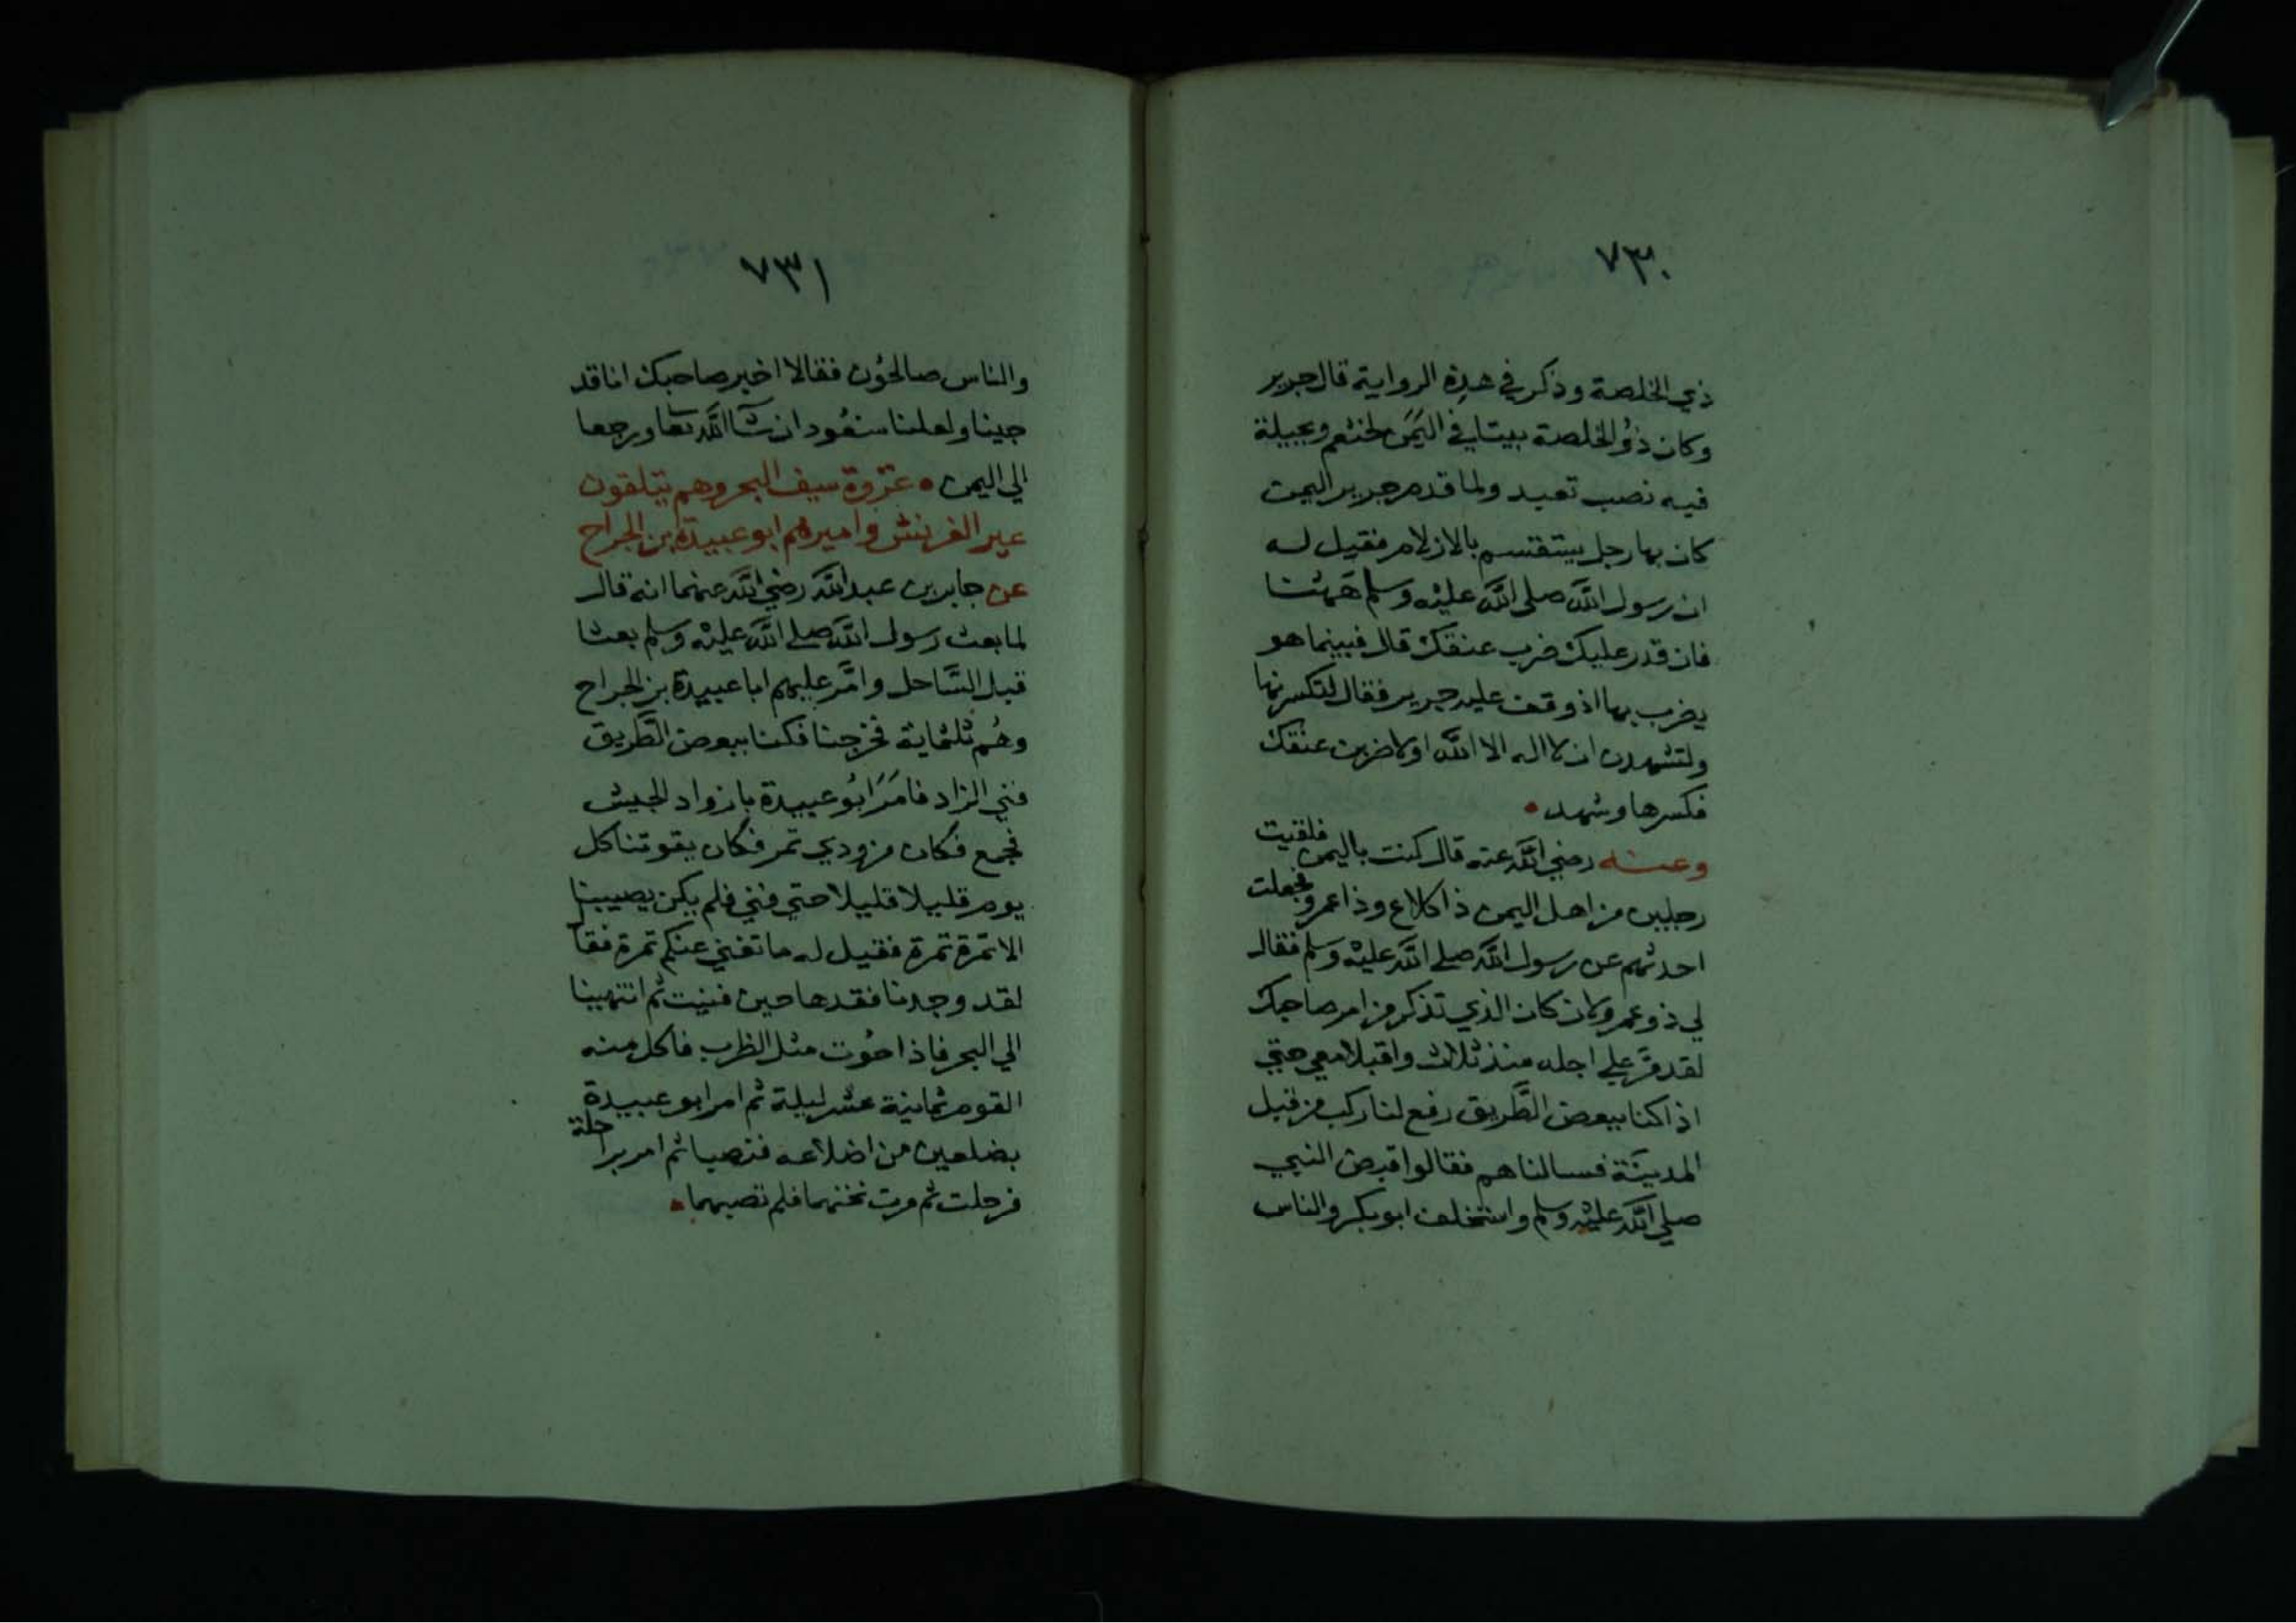 ٧٣٠
ذي الخلصة وذكر في هذه الرواية قال جرير
وكان ذو الخلصة بيتا في اليمن لخثعم وبجيلة
فيه نصب تعبد ولما قدم جرير اليمن
كان بها رجل يستقسم بالازلام فقيل له
ان رسول الله صلى الله عليه وسلم ههنا
فان قدر عليك ضرب عنقك قال فبينما هو
يضرب بها اذ وقف عليه جرير فقال لتكسرنها
ولتشهدن ان لا اله الا الله او لاضربن عنقك
فكسرها وشهد
وعنه رضي الله عنه قال كنت باليمن فلقيت
رجلين من اهل اليمن ذا كلاع وذا عمرو فجعلت
احدثهم عن رسول الله صلى الله عليه وسلم فقال
لي ذو عمرو لان كان الذي تذكر من امر صاحبك
لقد مر علي اجله منذ ثلاث واقبلا معي حتي
اذا كنا ببعض الطريق رفع لنا ركب من قبل
المدينة فسالناهم فقالوا قبض النبي
صلي الله عليه وسلم واستخلف ابو بكر والناس
٧٣١
والناس صالحون فقالا اخبر صاحبك انا قد
جينا ولعلنا سنعود ان شآ الله تعا ورجعا
الي اليمن غزوة سيف البحر وهم يتلقون
عير القريش واميرهم ابو عبيدة ابن الجراح
عن جابر بن عبد الله رضي الله عنهما انه قال
لما بعث رسول الله صلى الله عليه وسلم بعثا
قبل الساحل وامر عليهم ابا عبيدة بن الجراح
وهم ثلثماية فخرجنا فكنا ببعض الطريق
فني الزاد فامر ابو عبيدة بازواد الجيش
فجمع فكان مزودي تمر فكان يقوتنا كل
يوم قليلا قليلا حتي فني فلم يكن يصيبنا
الا تمرة تمرة فقيل له ما تغني عنكم تمرة فقا
لقد وجدنا فقدها حين فنيت ثم انتهينا
الي البحر فاذا حوت مثل الظرب فاكل منه
القوم ثمانية عشر ليلة ثم امر ابو عبيدة
بضلعين من اضلاعه فنصبا ثم امر براحلة
فرحلت ثم مرت تحتهما فلم تصبهما